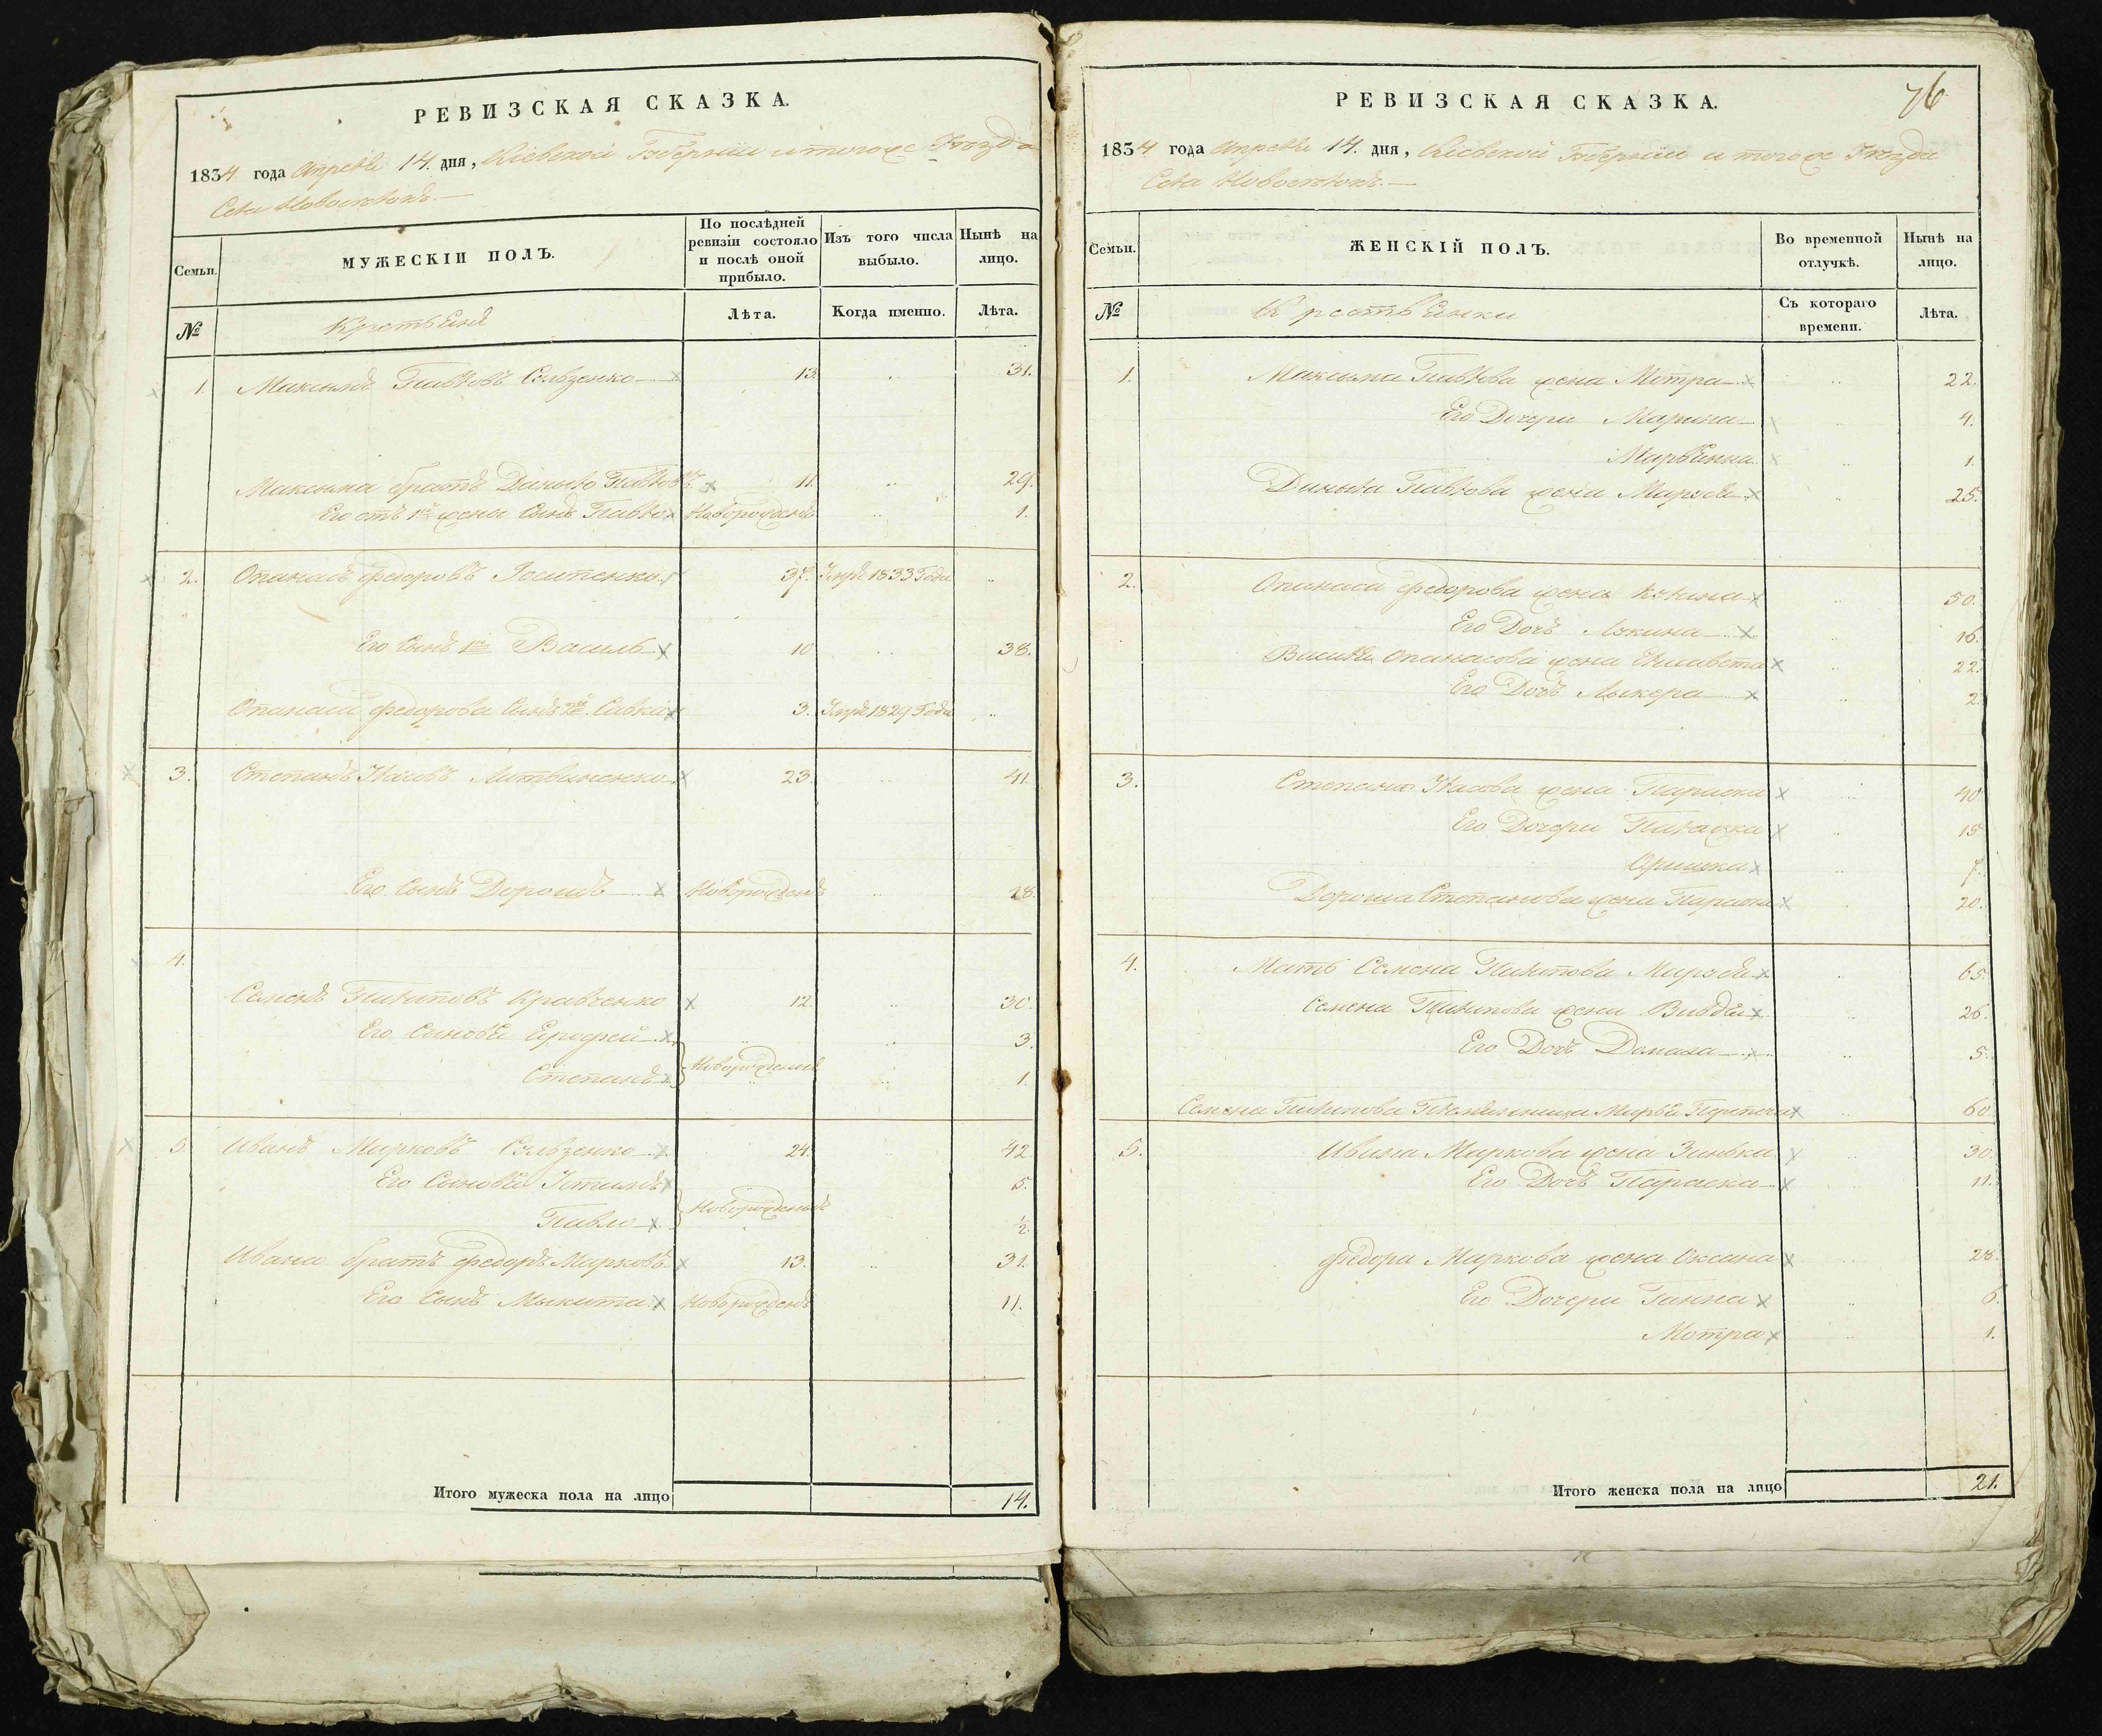 РЕВИЗСКАЯ СКАЗКА.
1834 года Апреля 14. дня, Кіевской Губерніи и тогоже Уѣзда
Села Новоселокъ.
Семьи.
МУЖЕСКІЙ ПОЛЪ.
По послѣдней ревизіи состояло и послѣ оной прибыло.
Изъ того числа выбыло.
Нынѣ на лицо.
№
Крестьяне
Лѣта.
Когда именно.
Лѣта.
1. Максимъ Павловъ 13. 31.
Максима братъ Даныло Павловъ 11. 29.
Его отъ 1й жены Сынъ Павло Новорожденъ 1.
2. Опанасъ Федоровъ 37. Умре 1833 Года
Его Сынъ 1й Василь 10 38.
Опанаса Федорова Сынъ 2й Савка 3. Умре 1829 Года
3. Степанъ Литвиненко 23. 41.
Его Сынъ Дорошъ Новорожденъ 18.
4.
Семенъ Пилиповъ Кравченко 12. 30.
Его Сыновья Ерофей 3.
Новорожденые
Степанъ 1.
5. Иванъ Марковъ 24. 42
Его Сыновья Устимъ 5.
Новорожденые
Павло ½
Ивана братъ Федоръ Марковъ 13. 31.
Его Сынъ Мыкита Новорожденъ 11.
Итого мужеска пола на лицо 14.
РЕВИЗСКАЯ СКАЗКА.
76
1834 года Апреля 14. дня, Кіевской Губерніи и тогоже Уѣзда
Села Новоселокъ.
Семьи.
ЖЕНСКІЙ ПОЛЪ.
Во временной отлучкѣ.
Нынѣ на лицо.
№
Крестьянки
Съ котораго времени.
Лѣта.
1. Максима Павлова жена Мотра 22.
Его Дочери Марина 4.
1.
Даныла Павлова жена Марья 25.
2. Опанаса Федорова жена 50.
Его Дочь 16.
Василя Опанасова жена Елисавета 22.
Его Дочь Лыкера 2.
3. Степана жена Параска 40
Его Дочери Палажка 15
Оришка 7.
Дороша Степанова жена Параска 20.
4. Мать Семена Пилипова Марья 65.
Семена Пилипова жена Вивдя 26.
Его Дочь Домаха 5.
Семена Пилипова Племянница Марья 60
5. Ивана Маркова жена Зинька 30
Его Дочь Параска 11.
Федора Маркова жена Оксана 28.
Его Дочери Ганна 6.
Мотра 1.
Итого женска пола на лицо 21.